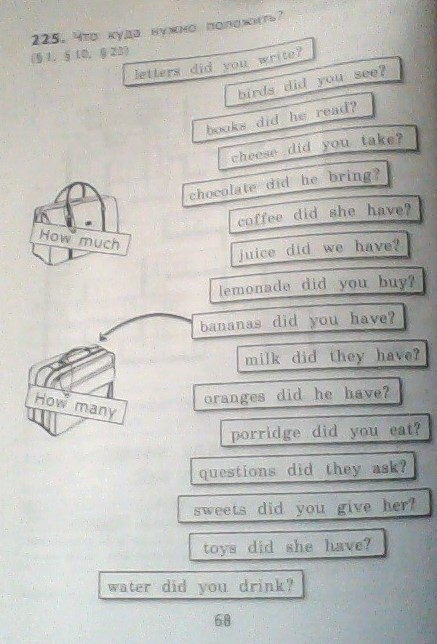 225. Что куда нужно положить?
(§ 1, § 10, § 23)
letters did you write?
birds did you see?
books did he read?
cheese did you take?
chocolate did he bring?
coffee did she have?
How much
juice did we have?
lemonade did you buy?
bananas did you have?
milk did they have?
oranges did he have?
How many
porridge did you eat?
questions did they ask?
sweets did you give her?
toys did she have?
water did you drink?
68